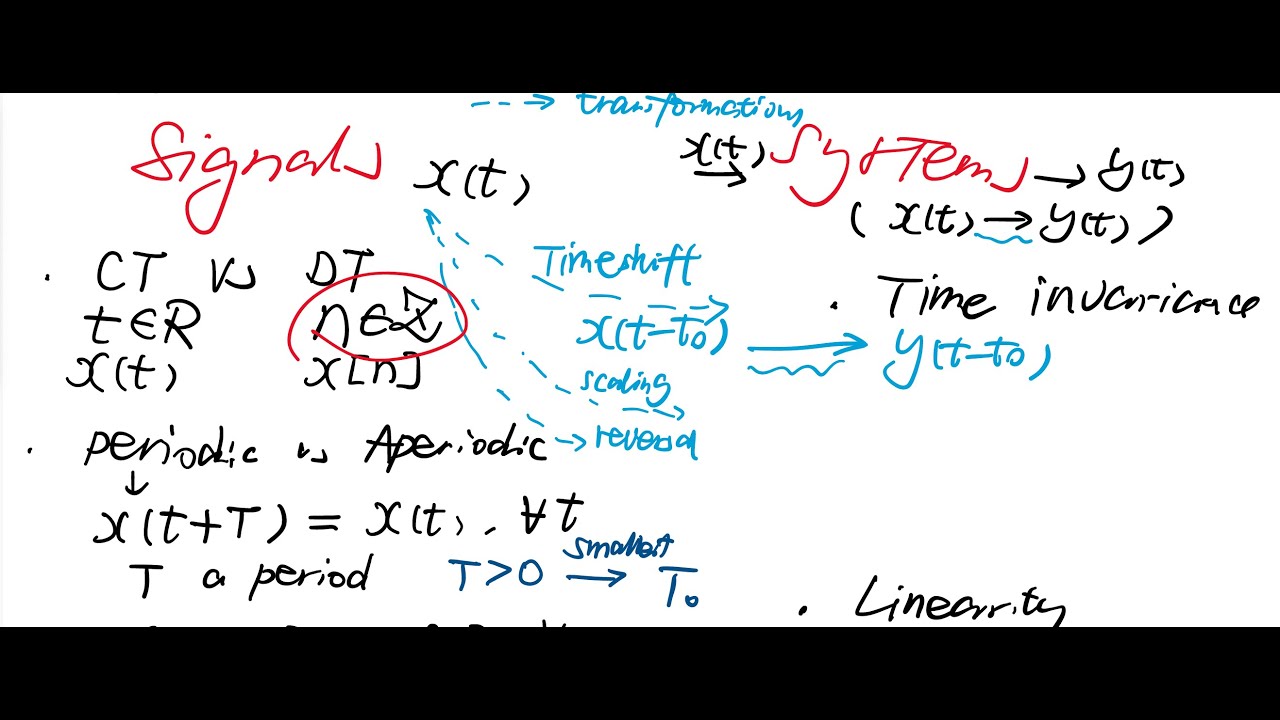 --> transformations
Signals x(t)
x(t) → Systems → y(t)
( x(t) → y(t) )
· CT vs DT
t∈R n∈Z
x(t) x[n]
Timeshift
x(t-t₀)
scaling
→ reversal
· Time invariance
y(t-t₀)
· periodic vs Aperiodic
↓
x(t+T) = x(t), ∀t
T a period T>0 smallest → T₀
· Linearity